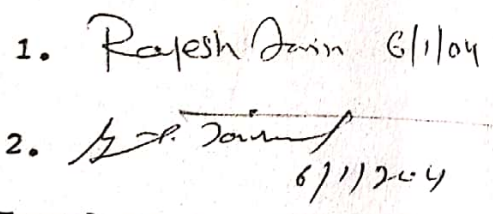 1. Rajesh Jain 6/1/04
2. Jain
6/1/2004